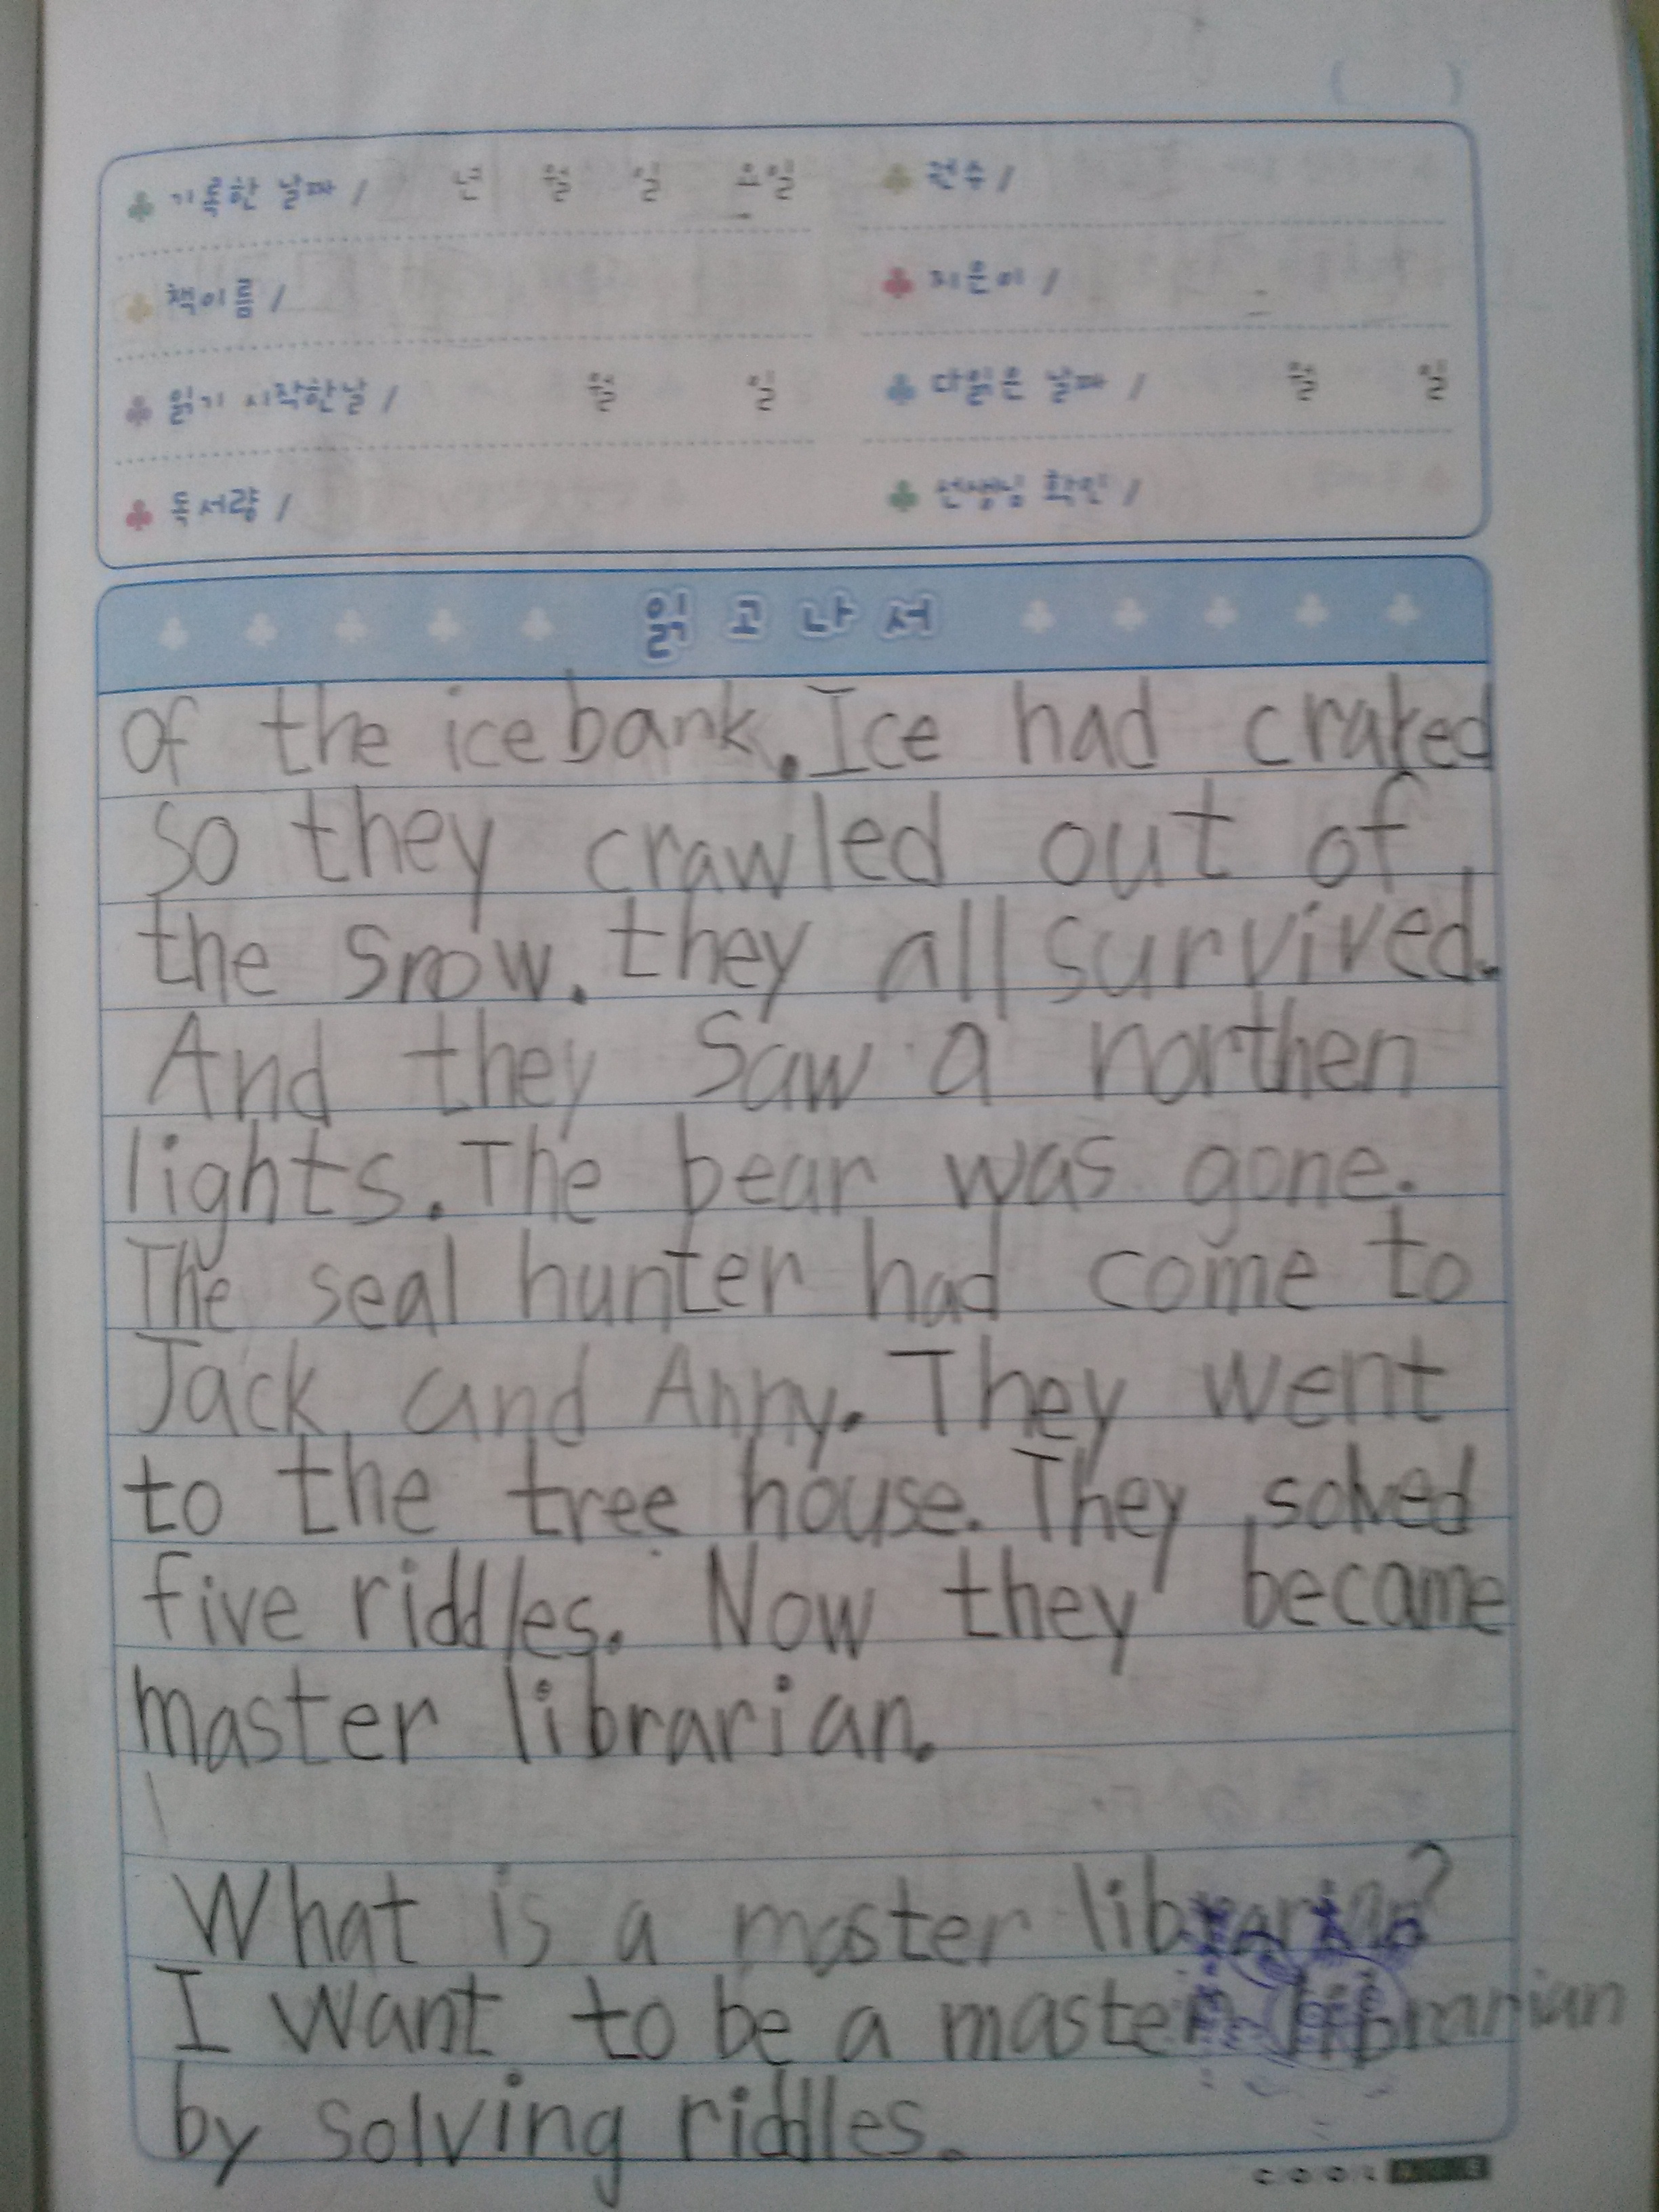 ( )
기록한 날짜 / 년 월 일 요일
권수 /
책이름 /
지은이 /
읽기 시작한날 / 월 일
다읽은 날짜 / 월 일
독서량 /
선생님 확인 /
읽고나서
of the ice bank. Ice had craked
so they crawled out of
the snow. they all survived.
And they saw a northen
lights. The bear was gone.
The seal hunter had come to
Jack and Anny. They went
to the tree house. They solved
five riddles. Now they became
master librarian.
What is a master librarian?
I want to be a master librarian
by solving riddles.